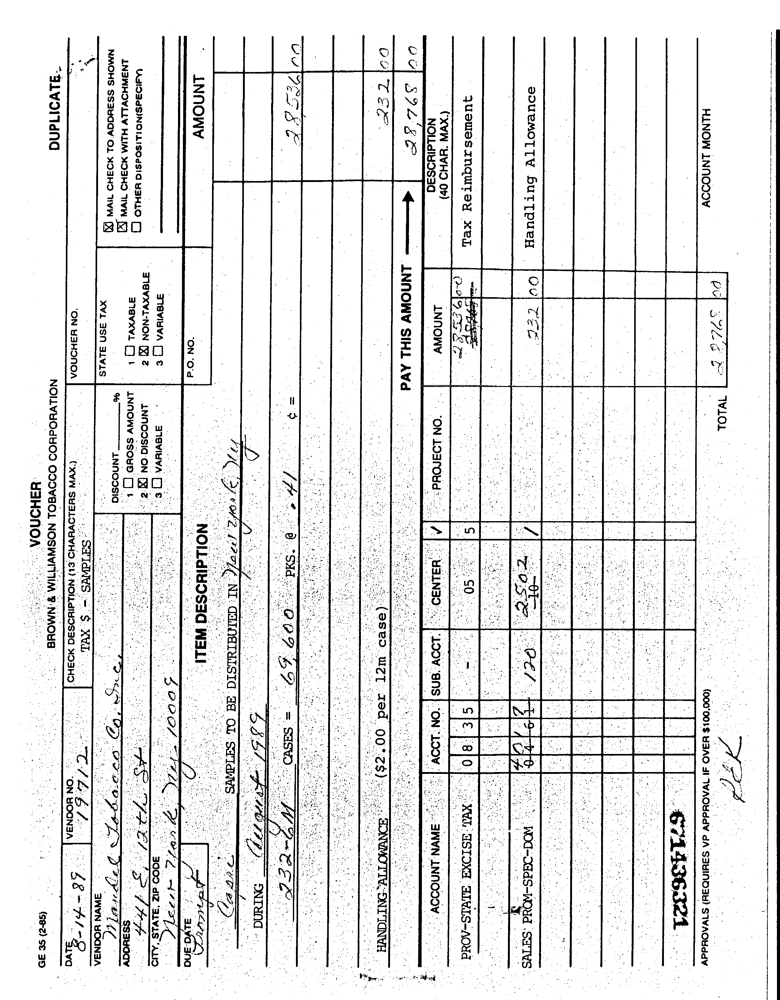 GE 35 (2-85)
VOUCHER
DUPLICATE
BROWN & WILLIAMSON TOBACCO CORPORATION
DATE 8-14-89
VENDOR NO. 19712
CHECK DESCRIPTION (13 CHARACTERS MAX.) TAX $ - SAMPLES
VOUCHER NO.
VENDOR NAME Mandel Tobacco Co. Inc.
ADDRESS 441 E. 12th St
CITY, STATE, ZIP CODE New York, NY 10009
DISCOUNT %
1 ☐ GROSS AMOUNT
2 ☒ NO DISCOUNT
3 ☐ VARIABLE
STATE USE TAX
1 ☐ TAXABLE
2 ☒ NON-TAXABLE
3 ☐ VARIABLE
☒ MAIL CHECK TO ADDRESS SHOWN
☒ MAIL CHECK WITH ATTACHMENT
☐ OTHER DISPOSITION(SPECIFY)
DUE DATE Prompt
P.O. NO.
ITEM DESCRIPTION
AMOUNT
SAMPLES TO BE DISTRIBUTED IN New York, NY
DURING August 1989
232-6M CASES = 69,600 PKS. @ .41 ¢ = 28536 00
HANDLING ALLOWANCE ($2.00 per 12m case) 232 00
PAY THIS AMOUNT 28,768 00
ACCOUNT NAME ACCT. NO. SUB. ACCT. CENTER ✓ PROJECT NO. AMOUNT DESCRIPTION (40 CHAR. MAX.)
PROV-STATE EXCISE TAX 0 8 3 5 - 05 5 28536 00 Tax Reimbursement
SALES PROM-SPEC-DOM 120 2502 1 232 00 Handling Allowance
TOTAL 28,768 00
671436321
APPROVALS (REQUIRES VP APPROVAL IF OVER $100,000)
ACCOUNT MONTH